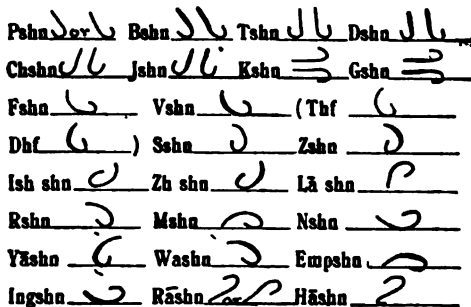 Pshn or Bshn Tshn Dshn
Chshn Jshn Kshn Gshn
Fshn Vshn (Thf
Dhf ) Sshn Zshn
Ish shn Zh shn Lā shn
Rshn Mshn Nshn
Yāshn Washn Empshn
Ingshn Rāshn or Hāshn